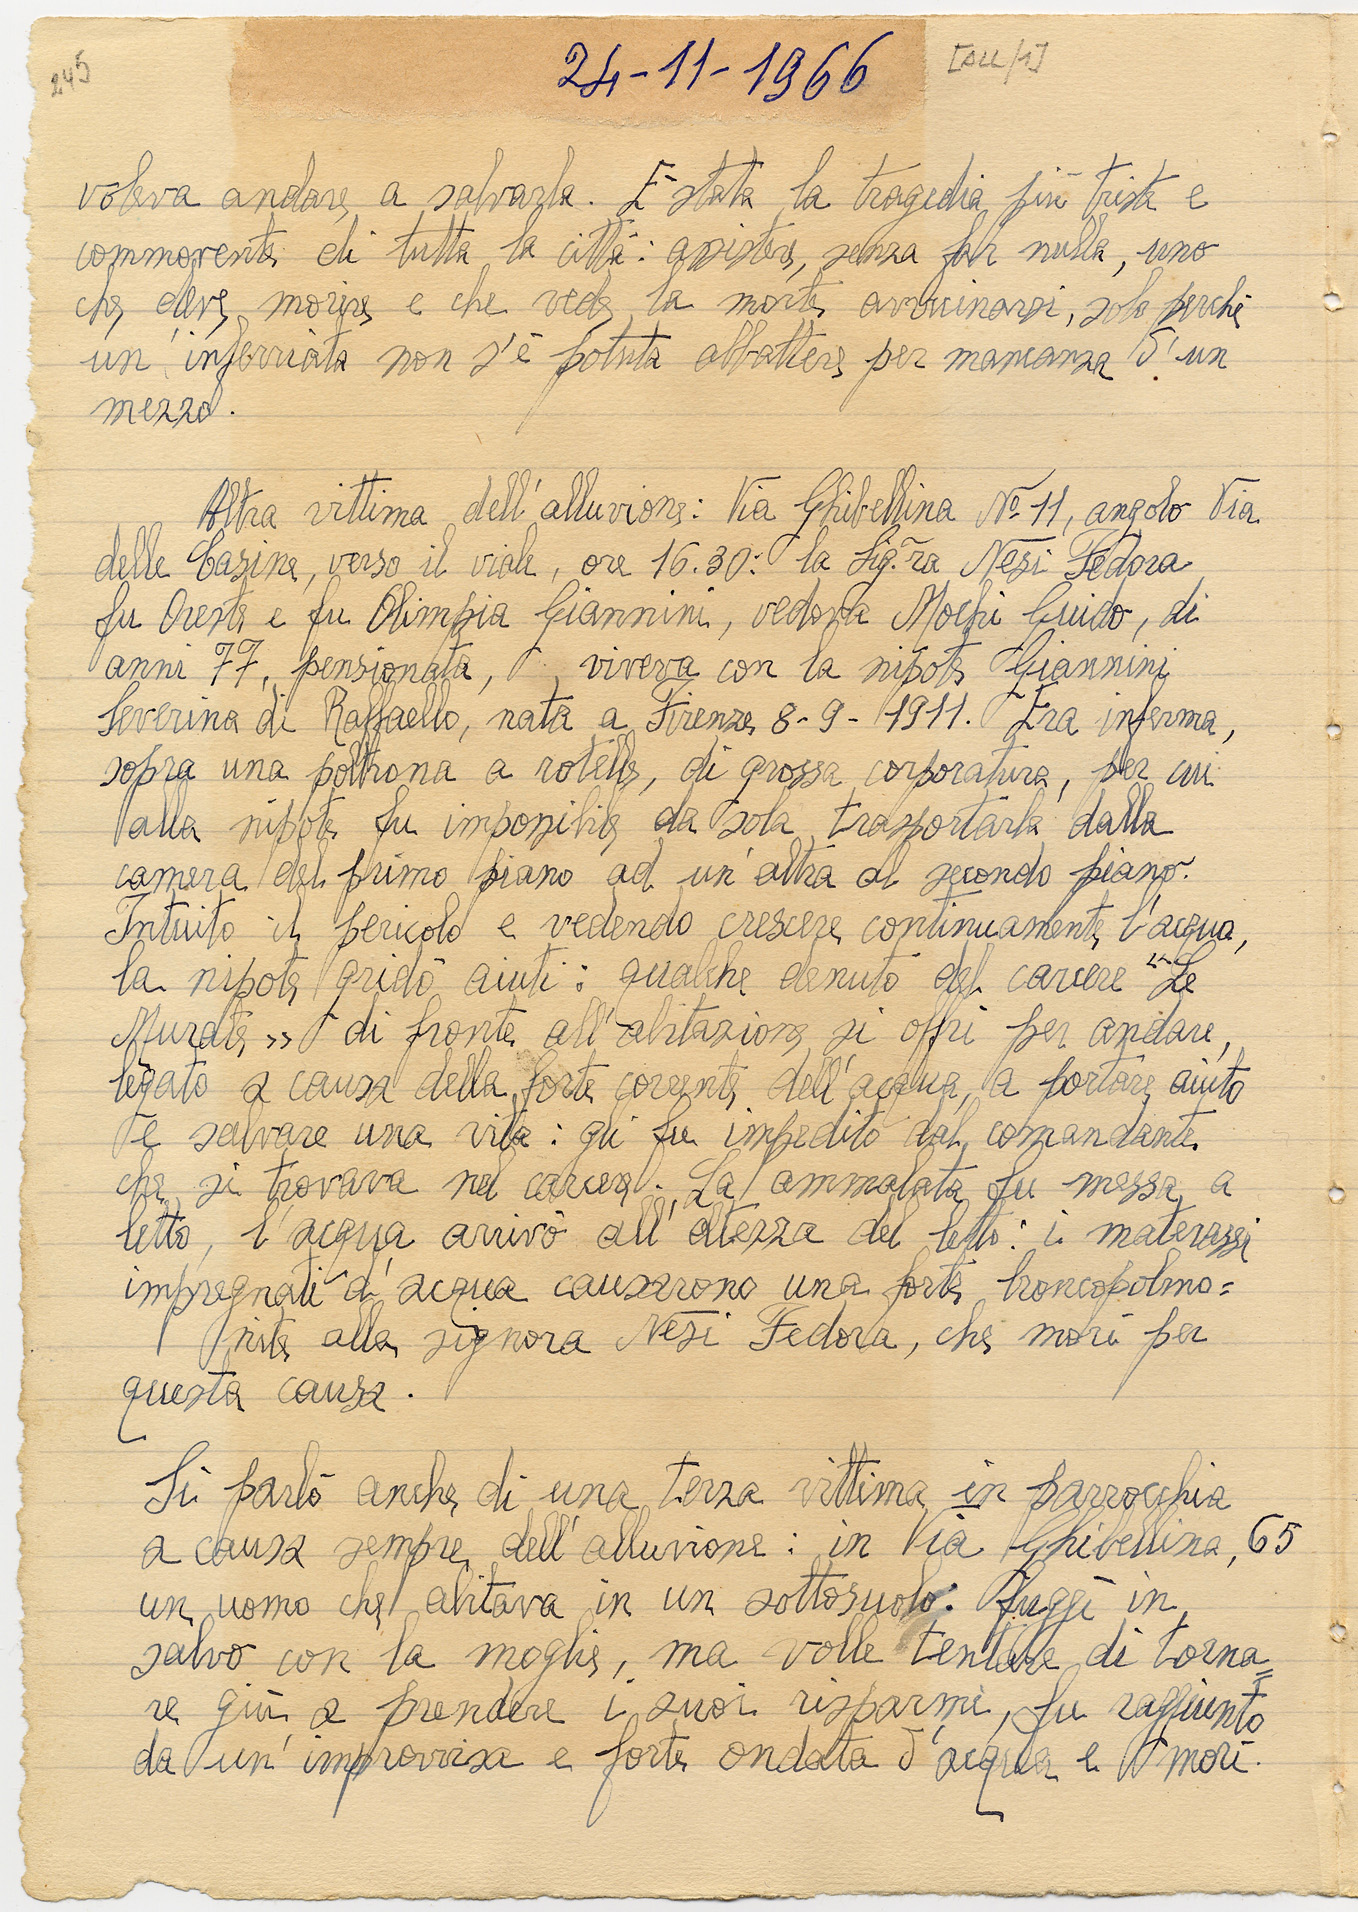 245
24-11-1966
[ALL/1]
voleva andare a salvarla. È stata la tragedia più triste e
commovente di tutta la città: assistere, senza far nulla, uno
che deve morire e che vede la morte avvicinarsi, solo perché
un'inferriata non s'è potuta abbattere per mancanza d'un
mezzo.
Altra vittima dell'alluvione: Via Ghibellina Nº 11, angolo Via
delle Casine, verso il viale, ore 16.30: la Sig.ra Nesi Fedora
fu Oreste e fu Olimpia Giannini, vedova Mochi Guido, di
anni 77, pensionata, viveva con la nipote Giannini
Severina di Raffaello, nata a Firenze 8-9-1911. Era inferma,
sopra una poltrona a rotelle, di grossa corporatura, per cui
alla nipote fu impossibile da sola trasportarla dalla
camera del primo piano ad un'altra al secondo piano.
Intuito il pericolo e vedendo crescere continuamente l'acqua,
la nipote gridò aiuti: qualche denuto del carcere "Le
Murate» di fronte all'abitazione si offrì per andare,
legato a causa della forte corrente dell'acqua, a portare aiuto
e salvare una vita: gli fu impedito dal comandante
che si trovava nel carcere. La ammalata fu messa a
letto, l'acqua arrivò all'altezza del letto: i materassi
impregnati d'acqua causarono una forte broncopolmo=
nite alla signora Nesi Fedora, che morì per
questa causa.
Si parlò anche di una terza vittima in parrocchia
a causa sempre dell'alluvione: in Via Ghibellina, 65
un uomo che abitava in un sottosuolo. Fuggì in
salvo con la moglie, ma volle tentare di torna=
re giù a prendere i suoi risparmi, fu raggiunto
da un'improvvisa e forte ondata d'acqua e morì.